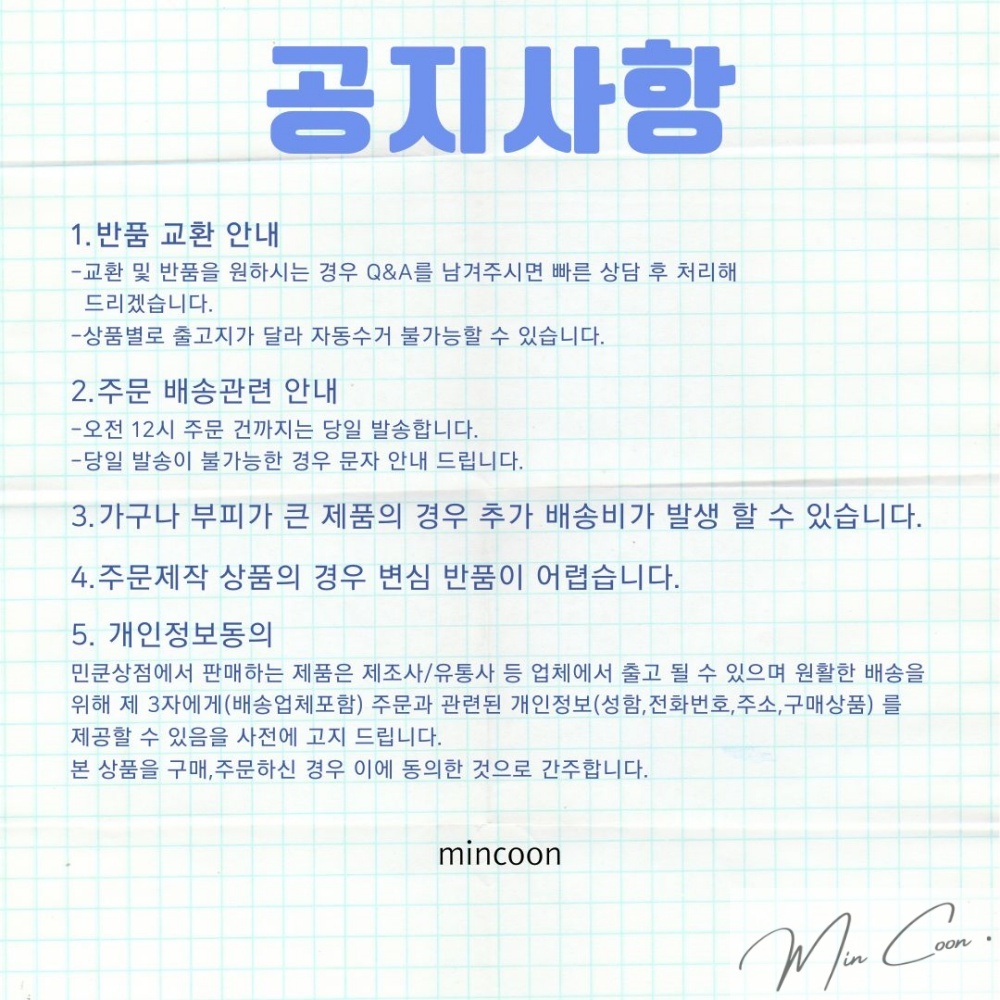 공지사항
1.반품 교환 안내
-교환 및 반품을 원하시는 경우 Q&A를 남겨주시면 빠른 상담 후 처리해
드리겠습니다.
-상품별로 출고지가 달라 자동수거 불가능할 수 있습니다.
2.주문 배송관련 안내
-오전 12시 주문 건까지는 당일 발송합니다.
-당일 발송이 불가능한 경우 문자 안내 드립니다.
3.가구나 부피가 큰 제품의 경우 추가 배송비가 발생 할 수 있습니다.
4.주문제작 상품의 경우 변심 반품이 어렵습니다.
5. 개인정보동의
민쿤상점에서 판매하는 제품은 제조사/유통사 등 업체에서 출고 될 수 있으며 원활한 배송을
위해 제 3자에게(배송업체포함) 주문과 관련된 개인정보(성함,전화번호,주소,구매상품) 를
제공할 수 있음을 사전에 고지 드립니다.
본 상품을 구매,주문하신 경우 이에 동의한 것으로 간주합니다.
mincoon
Min Coon .